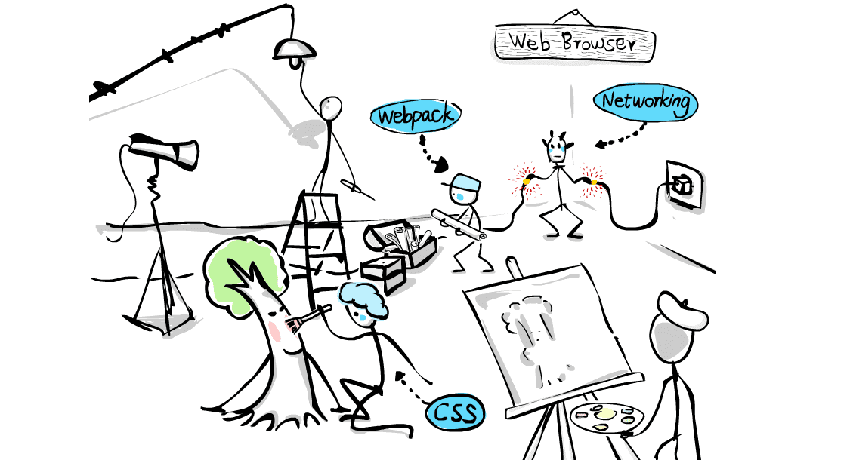 Web Browser
Webpack
Networking
CSS